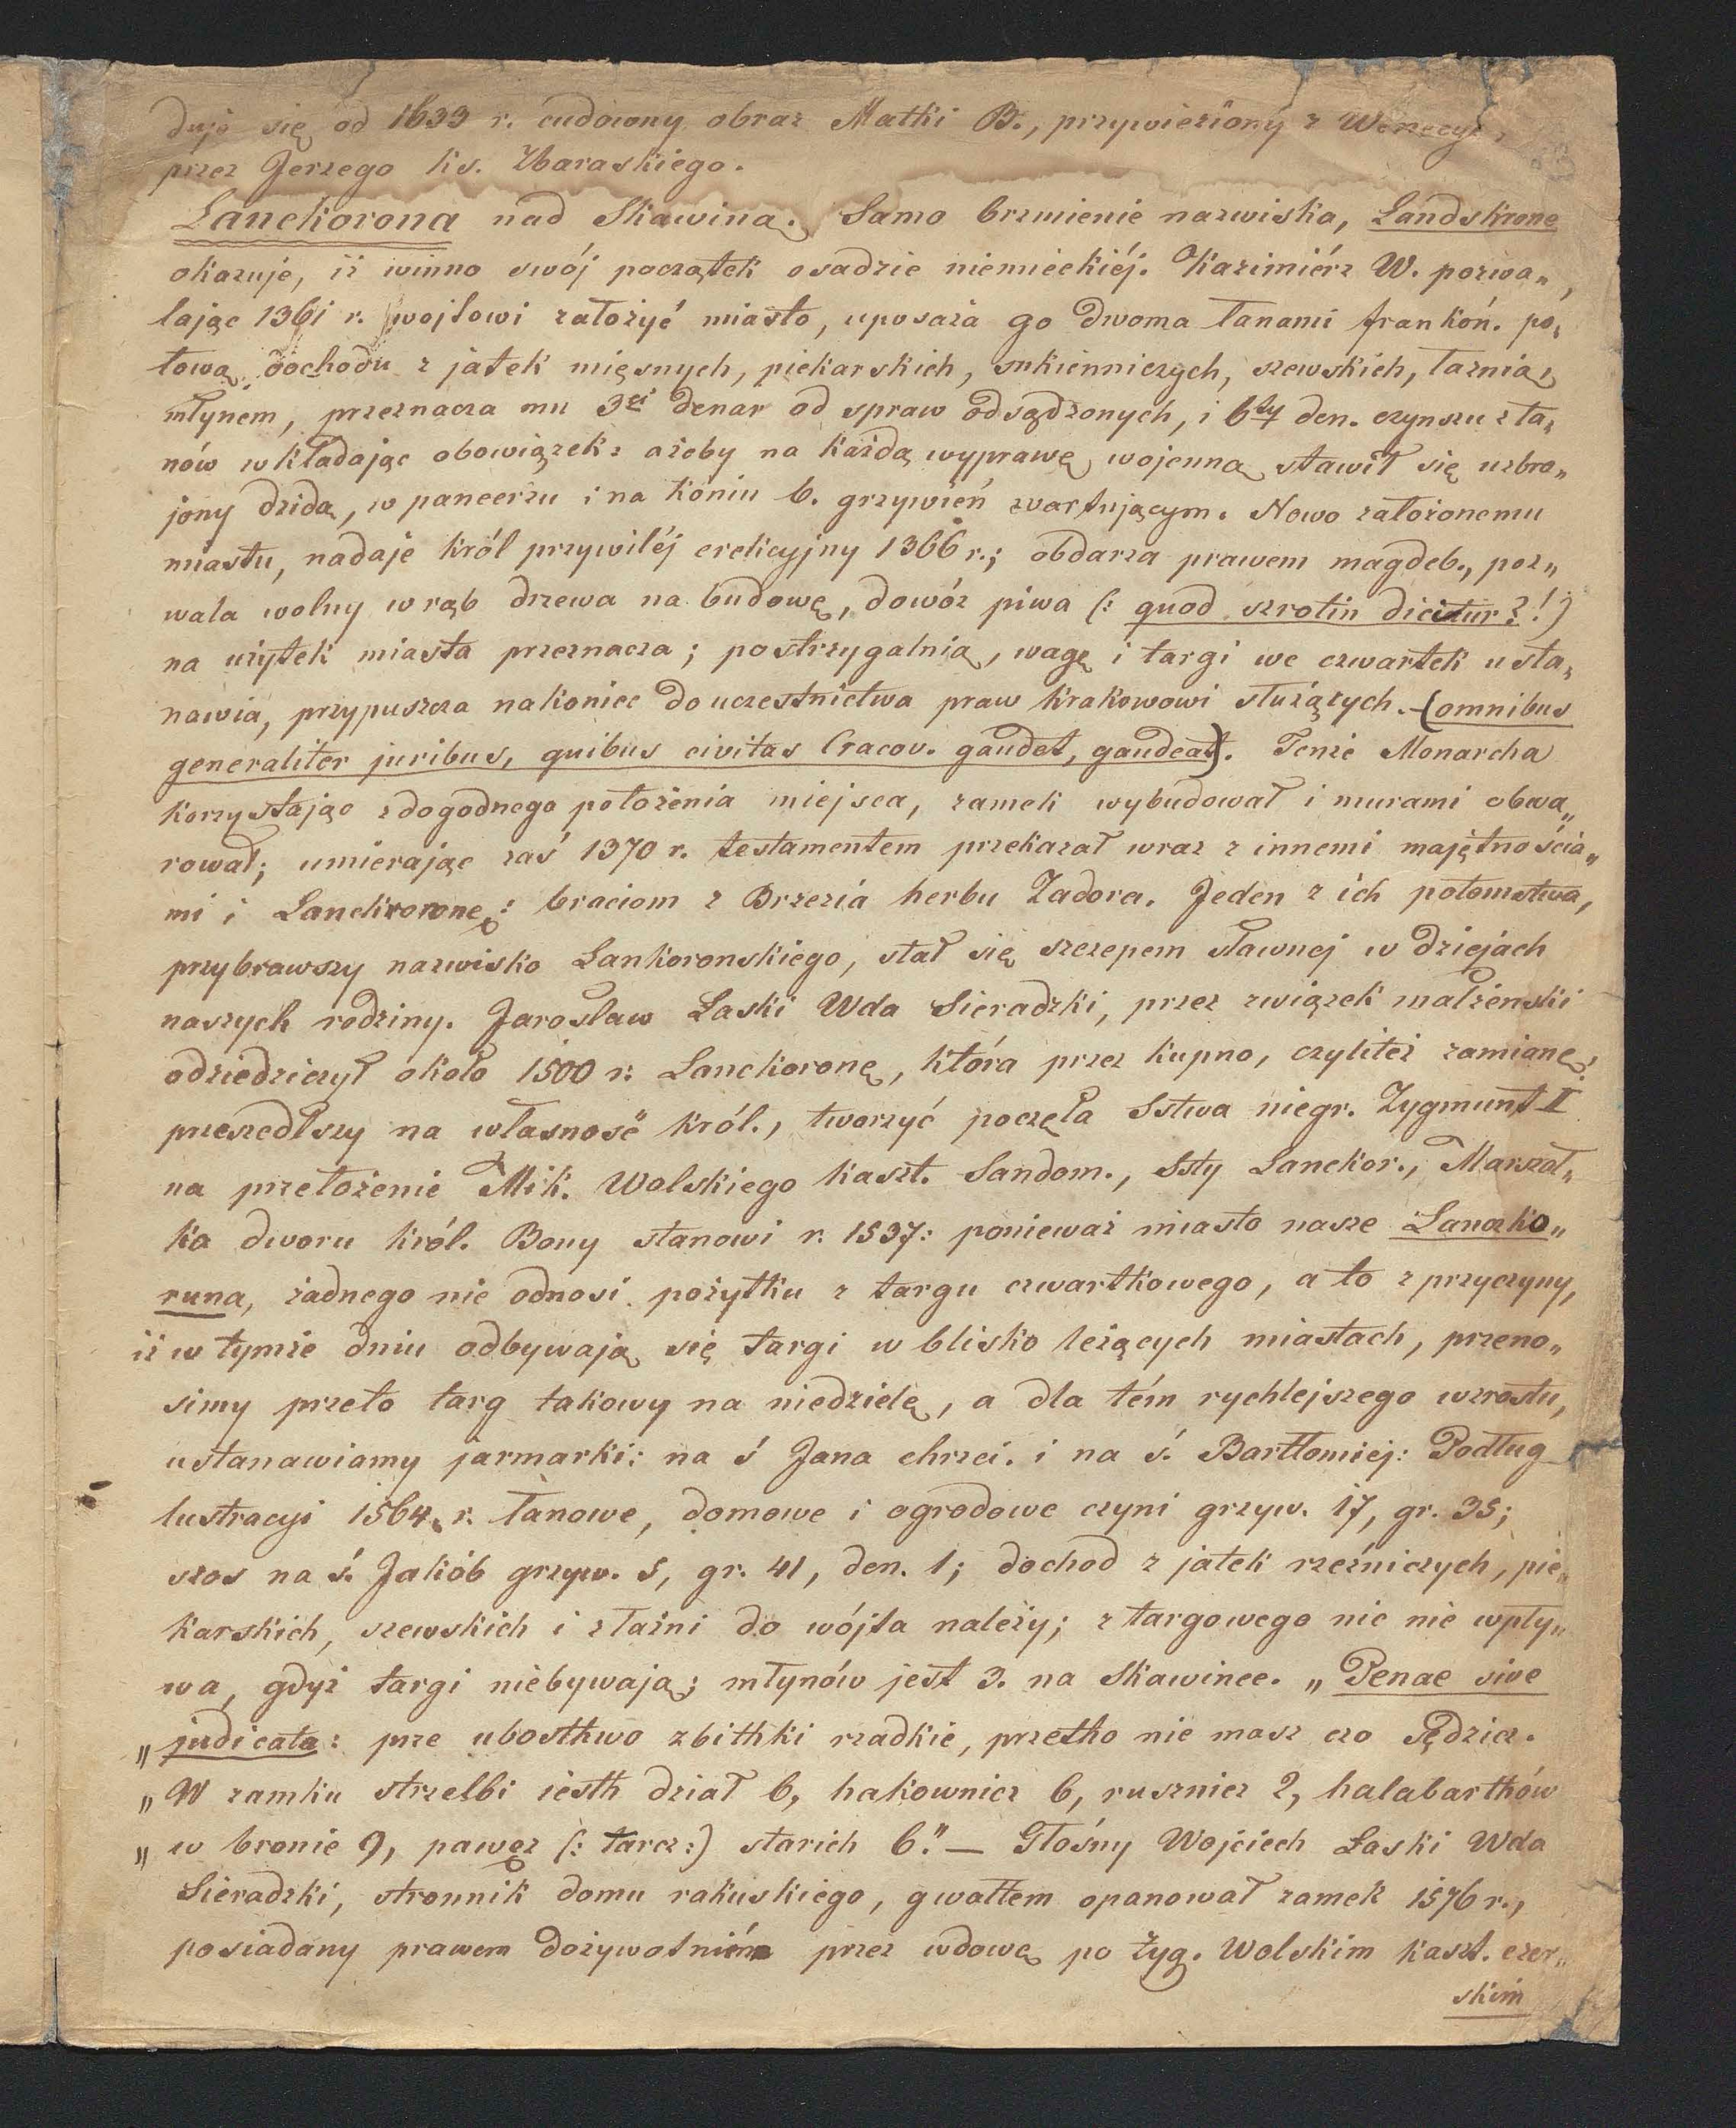 duje się od 1633 r. cudowny obraz Matki B., przywieziony z Wenecyi,
przez Jerzego ks. Zbaraskiego.
Lanckorona nad Skawiną. Samo brzmienie nazwiska, Landskrone
okazuje, iż winno swój początek osadzie niemieckiéj. Kazimiérz W. pozwa„
lając 1361 r. wojtowi założyć miasto, uposaża go dwoma łanami frankoń. po„
łową dochodu z jatek mięsnych, piekarskich, sukienniczych, szewskich, łaźnią,
młynem, przeznacza mu 3ci denar od spraw odsądzonych, i 6ty den. czynszu z ła„
nów wkładając obowiązek: ażeby na każdą wyprawę wojenną stawił się uzbro„
jony dzidą, w pancerzu i na koniu 6. grzywień wartującym. Nowo założonemu
miastu, nadaje król przywiléj erekcyjny 1366 r.; obdarza prawem magdeb., poz„
wala wolny wrąb drzewa na budowę, dowóz piwa (: quod szrotin dicitur?!)
na użytek miasta przeznacza; postrzygalnią, wagę i targi we czwartek usta„
nawia, przypuszcza nakoniec do uczestnictwa praw Krakowowi służących. (omnibus
generaliter juribus, quibus civitas Cracov. gaudet, gaudeat). Tenże Monarcha
korzystając z dogodnego położenia miejsca, zamek wybudował i murami obwa„
rował; umierając zaś 1370 r. testamentem przekazał wraz z innemi majętnościa„
mi i Lanckoronę: braciom z Brzezia herbu Zadora. Jeden z ich potomstwa,
przybrawszy nazwisko Lankoronskiego, stał się szczepem sławnej w dziejach
naszych rodziny. Jarosław Łaski Wda Sieradzki, przez związek małżeński
odziedziczył około 1500 r. Lanckoronę, która przez kupno, czyliteż zamianę,
przeszedłszy na własność król., tworzyć poczęła Sstwa niegr. Zygmunt II
na przełożenie Mik. Wolskiego kaszt. Sandom., Ssty Lanckor., Marszał„
ka dworu król. Bony stanowi r. 1537: ponieważ miasto nasze Lanczko„
runa, żadnego nie odnosi pożytku z targu czwartkowego, a to z przyczyny,
iż w tymże dniu odbywają się targi w blisko leżących miastach, przeno„
simy przeto targ takowy na niedzielę, a dla tém rychlejszego wzrostu,
ustanawiamy jarmarki: na ś Jana chrzci. i na ś. Bartłomiej: Podług
lustracyi 1564. r. łanowe, domowe i ogrodowe czyni grzyw. 17, gr. 35;
szos na ś. Jakób grzyw. 5, gr. 41, den. 1; dochod z jatek rzeźniczych, pie„
karskich, szewskich i z łaźni do wójta należy; z targowego nic nie wpły„
wa, gdyż targi niebywają; młynów jest 3. na Skawince. „Penae sive
„judicata: prze ubosthwo zbithki rzadkie, przetho nie masz czo sędzicz.
„W zamku strzelbi iesth dział 6, hakownicz 6, rusznicz 2, halabarthów
„w bronie 9, pawęz (: tarcz:) starich 6." — Głośny Wojciech Łaski Wda
Sieradzki, stronnik domu rakuskiego, gwałtem opanował zamek 1576 r.,
posiadany prawem dożywotniém przez wdowę po Zyg. Wolskim kaszt. czer„
skim